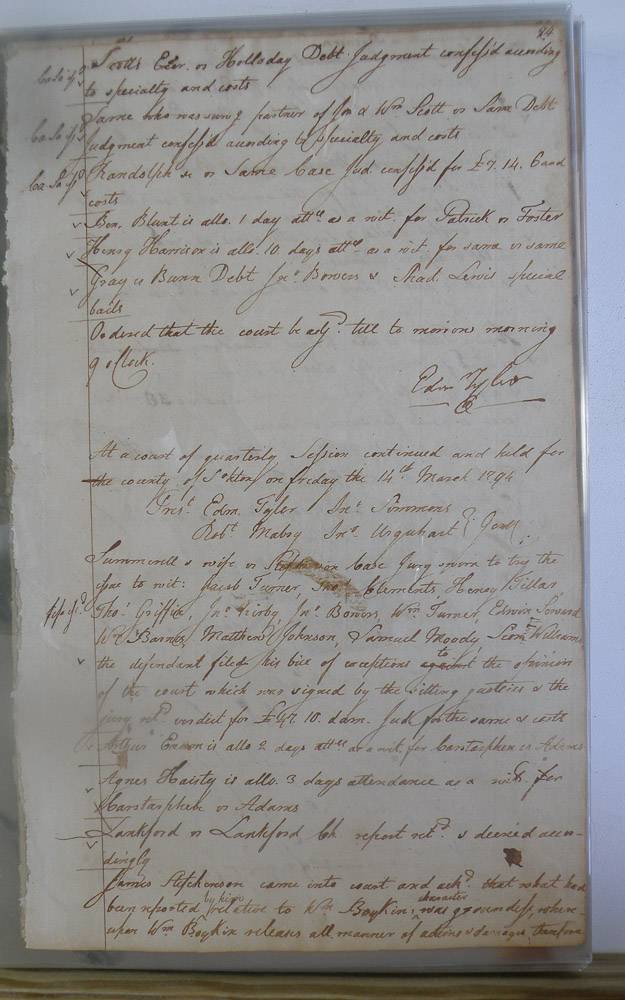 84
Scotts Exor. vs Holloday Debt Judgment confess'd according
to specialty and costs
Same who was survg partner of Jno & Wm Scott vs Same Debt
Judgment confess'd according to specialty and costs
Randolph &c vs Same Case Jud. confess'd for £7. 14. 6 and
costs
Ben. Blunt is allo. 1 day attce as a wit. for Patrick vs Foster
Henry Harrison is allo. 10. days attce as a wit. for same vs same
Gray vs Bunn Debt Jno. Bowers & Shad. Lewis special
bails
Ordered that the court be adjd. till to morrow morning
9 oClock.
Edm Tyler
At a court of quarterly Session continued and held for
the county of Sohton on friday the 14th March 1794
Prest. Edm. Tyler Jno. Simmons
Robt Mabry Jno. Urquhart Gent.
Summerell & wife vs Case Jury sworn to try the
issue to wit: Jacob Turner, Clements, Henry Pillar
Thos. Griffith, Jno. Kirby, Jno. Bowers, Wm Turner, Edwin Seward
Wm Barnes, Matthew Johnson, Samuel Moody, Williams
the defendant filed his bill of exceptions against to the opinion
of the court which was signed by the sitting justices & the
jury retd. verdict for £47. 10. dam. Jud. for the same & costs
Arthur is allo 2 days attce as a wit. for Carstarphen vs Adams
Agnes Haisty is allo. 3 days attendance as a wit. for
Carstarphen vs Adams
Lankford vs Lankford Ch report retd. & decreed accor-
dingly
James Stephenson came into court and ackd. that what had
been reported by him relative to Wm Boykins character was groundless, where-
upon Wm Boykin releases all manner of actions & damages, therefore